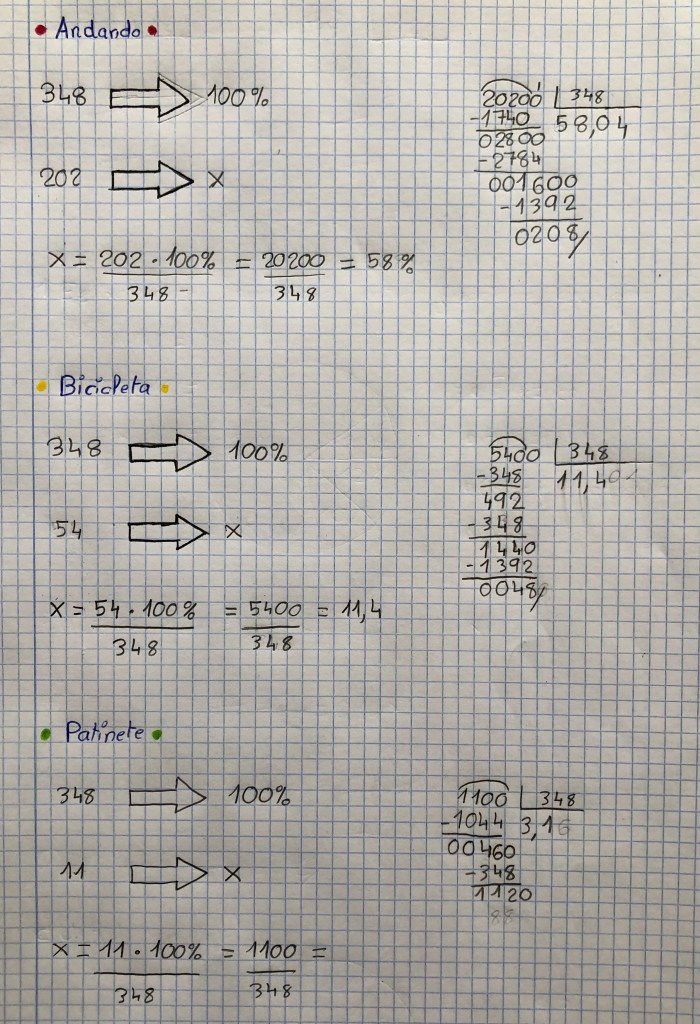 • Andando •
348 ⇒ 100%
20200 | 348
-1740 58,04
02800
-2784
001600
-1392
0208/
202 ⇒ x
x = 202 · 100% / 348 = 20200 / 348 = 58%
• Bicicleta •
348 ⇒ 100%
5400 | 348
-348 11,4
492
-348
1440
-1392
0048/
54 ⇒ x
x = 54 · 100% / 348 = 5400 / 348 = 11,4
• Patinete •
348 ⇒ 100%
1100 | 348
-1044 3,16
00460
-348
1120
11 ⇒ x
x = 11 · 100% / 348 = 1100 / 348 =